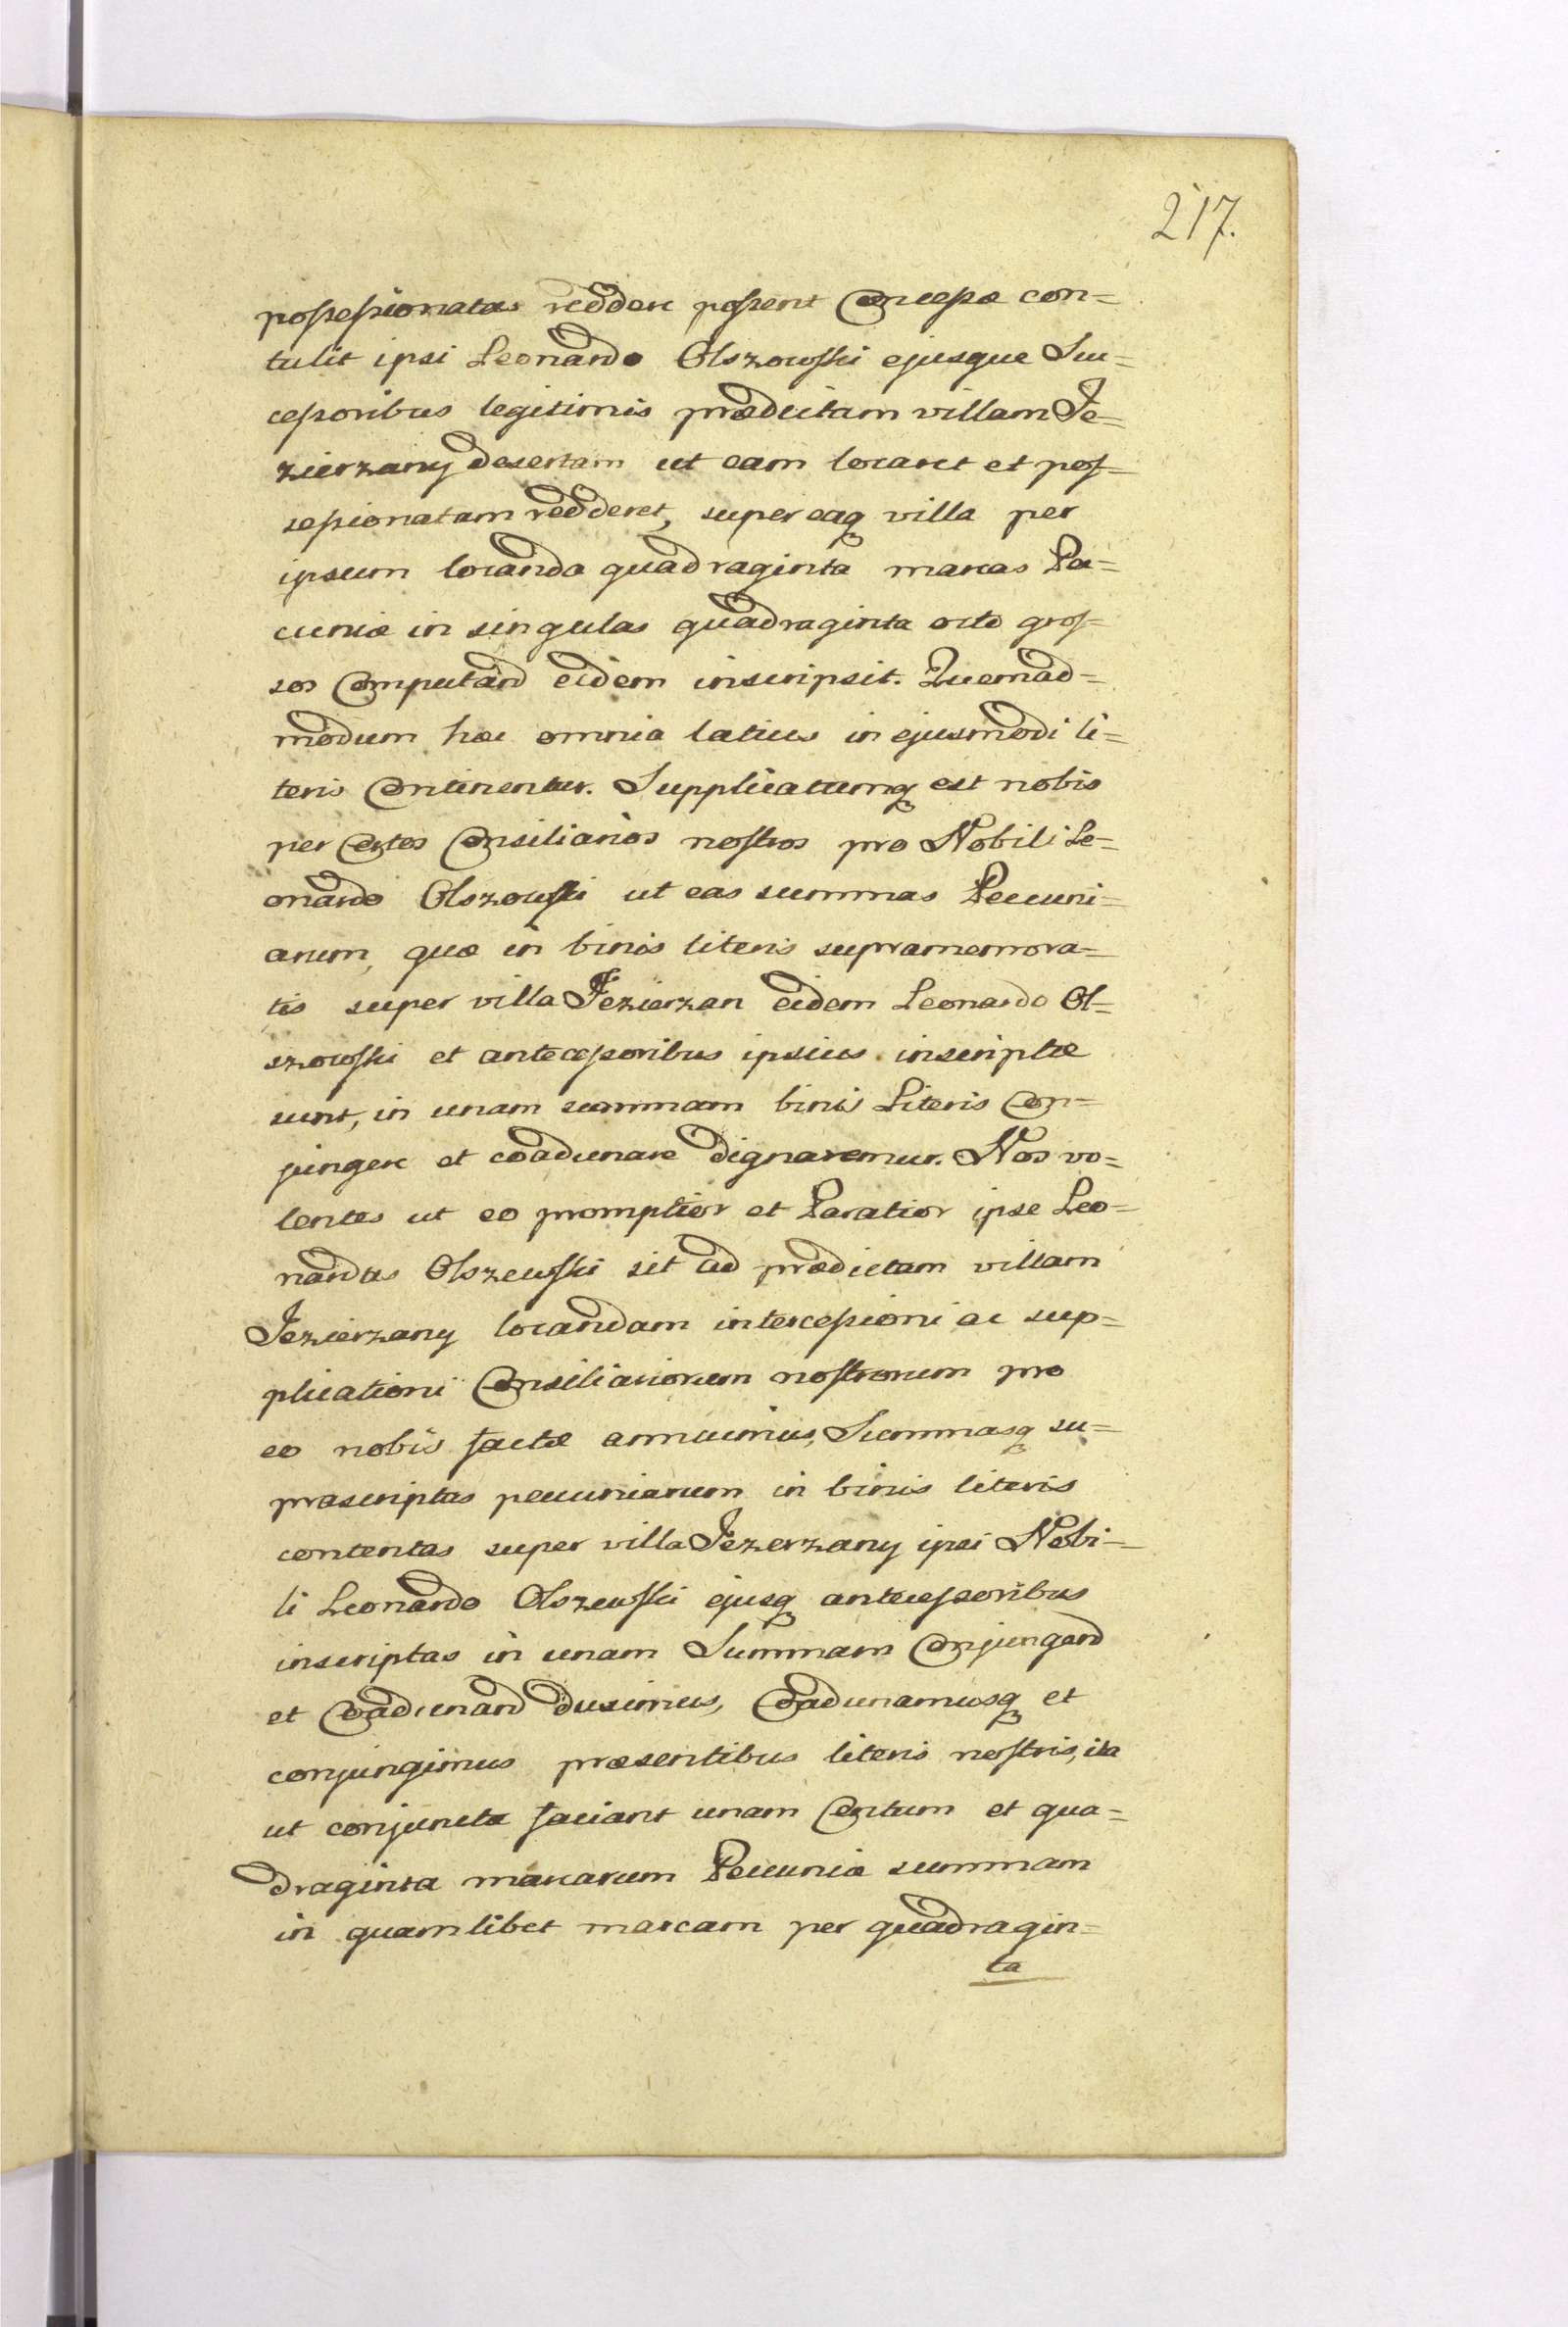 217.
possessionatas reddere possent Concessae con=
tulit ipsi Leonardo Olszowski ejusque Suc=
cessoribus legitimis praedictam villam Je=
zierzany desertam ut eam locaret et pos=
sessionatam redderet, super eaq villa per
ipsum locanda quadraginta marcas Pe=
cuniae in singulas quadraginta octo gros=
sos Computand eidem inscripsit. Quemad=
modum haec omnia latius in ejusmodi li=
teris Continentur. Supplicatumq est nobis
per Certos Consiliarios nostros pro Nobili Le=
onardo Olszowski ut eas summas Pecuni=
arum, quae in binis literis supramemora=
tis super villa Jezierzan eidem Leonardo Ol=
szowski et antecessoribus ipsius inscriptae
sunt, in unam summam binis Literis Con=
jungere et coadunare dignaremur. Nos vo=
lentes ut eo promptior et Paratior ipse Leo=
nardus Olszewski sit ad praedictam villam
Jezierzany locandam intercessioni ac sup=
plicationi Consiliariorum nostrorum pro
eo nobis factae annuimus, Summasq su=
prascriptas pecuniarum in binis literis
contentas super villa Jezerzany ipsi Nobi=
li Leonardo Olszewski ejusq antecessoribus
inscriptas in unam Summam Conjungend
et Coadunand duximus, Coadunamusq et
conjungimus praesentibus literis nostris, ita
ut conjunctae faciant unam Centum et qua=
draginta marcarum Pecuniae summam
in quamlibet marcam per quadragin=
ta